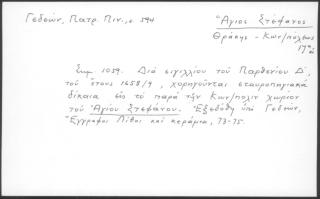 Γεδεών, Πατρ. Πιν., σ. 594
Ἅγιος Στέφανος
Θράκης - Κων/πόλεως
17ος αἰ
Σημ. 1059. Διά σιγιλλίου τοῦ Παρθενίου Δ΄,
τοῦ ἔτους 1658/9, χορηγοῦνται σταυροπηγιακά
δίκαια εἰς τό παρά τήν Κων/πολιν χωρίον
τοῦ Ἁγίου Στεφάνου. Ἐξεδόθη ὑπό Γεδεών,
Ἔγγραφοι Λίθοι καί κεράμια, 73-75.